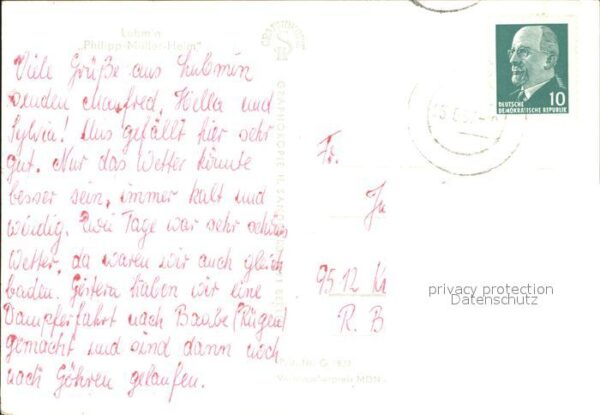 Lubmin
„Philipp-Müller-Heim"
Viele Grüße aus Lubmin
senden Manfred, Hella und
Sylvia! Uns gefällt hier sehr
gut. Nur das Wetter könnte
besser sein, immer kalt und
windig. Zwei Tage war sehr schönes
Wetter, da waren wir auch gleich
baden. Gestern haben wir eine
Dampferfahrt nach Baabe (Rügen)
gemacht und sind dann noch
nach Göhren gelaufen.
10
DEUTSCHE
DEMOKRATISCHE REPUBLIK
Fr.
Ju
9512 K
R. B
privacy protection
Datenschutz